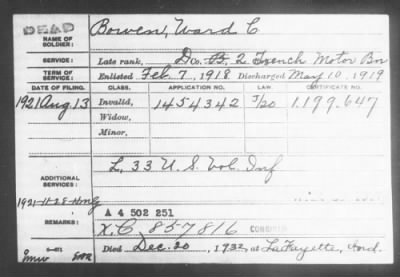 DEAD
NAME OF SOLDIER: Bowen, Ward C
SERVICE: Late rank, D Co. 2 Trench Motor Bn
TERM OF SERVICE: Enlisted Feb. 7, 1918 Discharged May 10, 1919
DATE OF FILING. CLASS. APPLICATION NO. LAW. CERTIFICATE NO.
1921 Aug 13 Invalid, 1454342 1.199.647
Widow,
Minor,
ADDITIONAL SERVICES: L, 33 U.S. Vol. Inf
A 4 502 251
REMARKS: X.C. 857816
Died Dec. 20, 1932, at LaFayette, Ind.